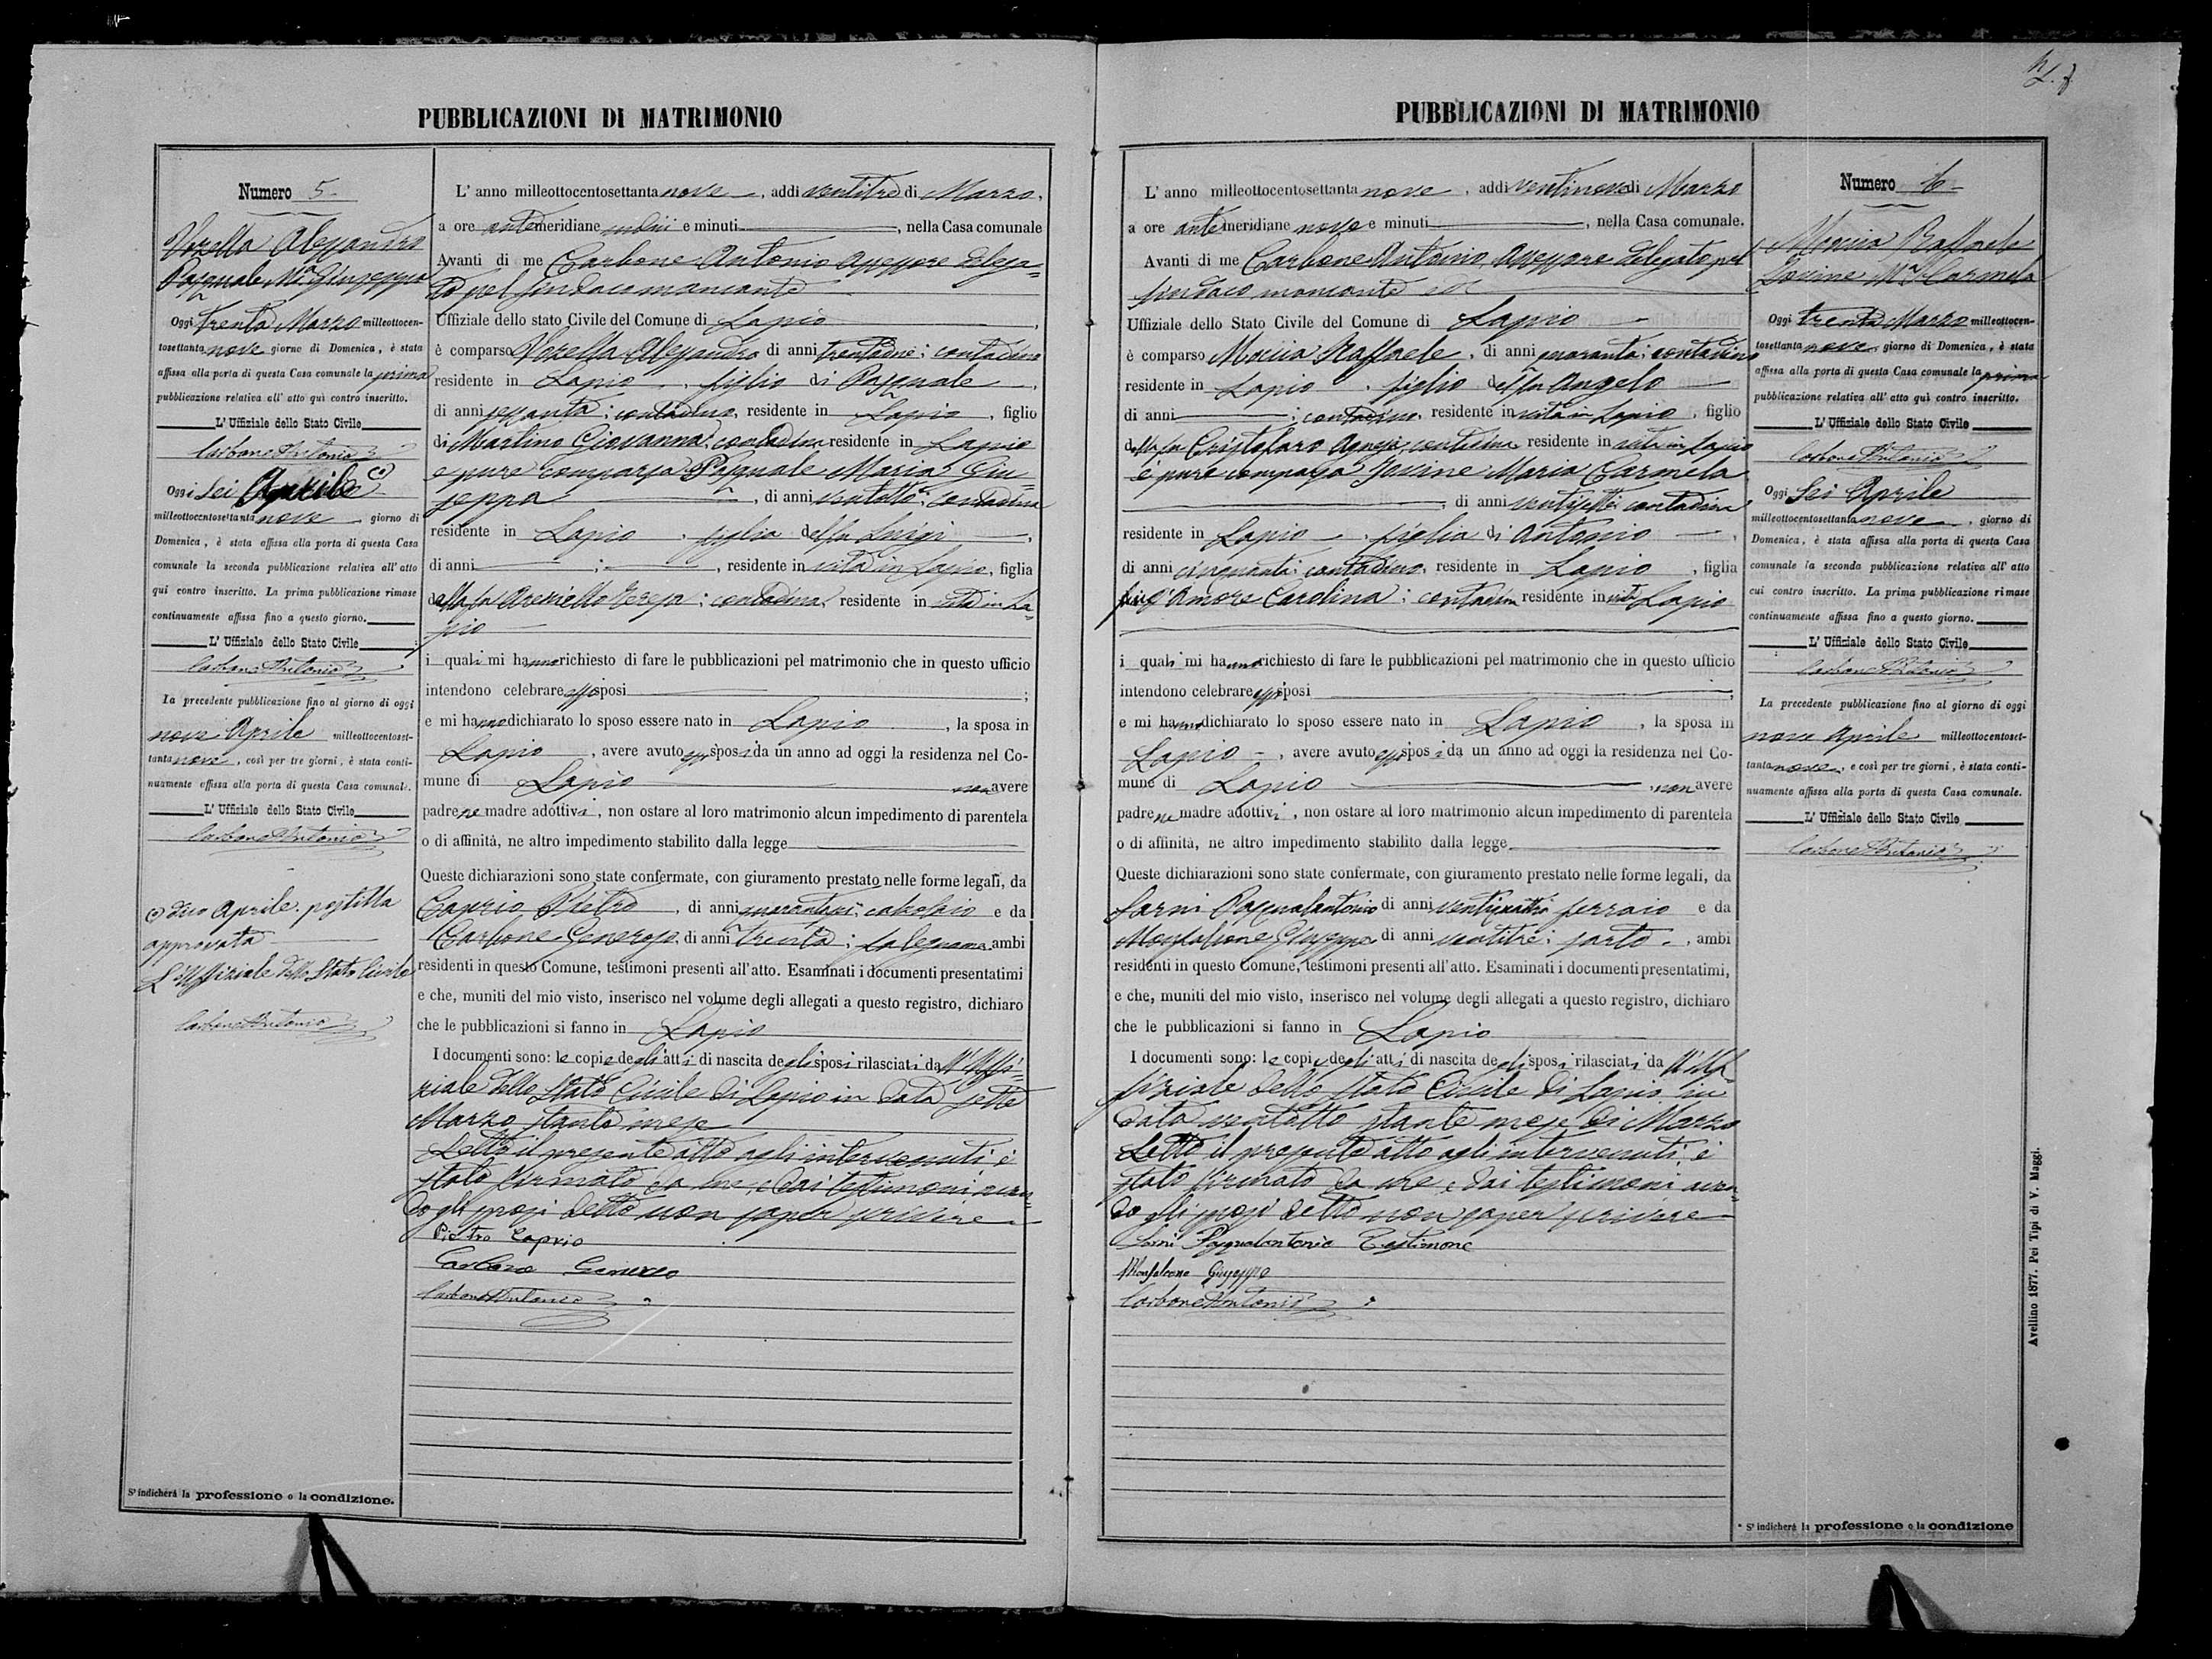 PUBBLICAZIONI DI MATRIMONIO
Numero 5
Vozella Alessandro
Pasquale Ma. Giuseppa
Oggi trenta Marzo milleottocen-
tosettanta nove giorno di Domenica, è stata
affissa alla porta di questa Casa comunale la prima
pubblicazione relativa all' atto quì contro inscritto.
L' Uffiziale dello Stato Civile
Carbone Antonio
Oggi Sei Aprile
milleottocentosettanta nove giorno di
Domenica, è stata affissa alla porta di questa Casa
comunale la seconda pubblicazione relativa all' atto
qui contro inscritto. La prima pubblicazione rimase
continuamente affissa fino a questo giorno.
L' Uffiziale dello Stato Civile
Carbone Antonio
La precedente pubblicazione fino al giorno di oggi
nove Aprile milleottocentoset-
tanta nove, così per tre giorni, è stata conti-
nuamente affissa alla porta di questa Casa comunale.
L' Uffiziale dello Stato Civile
Carbone Antonio
dico Aprile postilla
approvata
L'Uffiziale dello Stato Civile
Carbone Antonio
S' indicherà la professione o la condizione.
L' anno milleottocentosettanta nove, addì ventitre di Marzo,
a ore antemeridiane undici e minuti, nella Casa comunale
Avanti di me Carbone Antonio Assessore delega=
to pel Sindaco mancante
Uffiziale dello stato Civile del Comune di Lapio,
è comparso Vozella Alessandro di anni trentadue; contadino
residente in Lapio, figlio di Pasquale,
di anni sessanta; contadino, residente in Lapio, figlio
di Martino Giovanna; contadina residente in Lapio
e pure comparsa Pasquale Maria Giu=
seppa, di anni ventotto; contadina
residente in Lapio, figlia del fu Luigi,
di anni ; , residente in vita in Lapio, figlia
della fu Teresa; contadina, residente in vita in La=
pio
i quali mi hanno richiesto di fare le pubblicazioni pel matrimonio che in questo ufficio
intendono celebrare essi sposi ;
e mi hanno dichiarato lo sposo essere nato in Lapio, la sposa in
Lapio, avere avuto essi sposi da un anno ad oggi la residenza nel Co-
mune di Lapio non avere
padre ne madre adottivi, non ostare al loro matrimonio alcun impedimento di parentela
o di affinità, ne altro impedimento stabilito dalla legge
Queste dichiarazioni sono state confermate, con giuramento prestato nelle forme legali, da
Caprio Pietro, di anni quarantasei; calzolaio e da
Carbone Generoso, di anni trenta; falegname, ambi
residenti in questo Comune, testimoni presenti all'atto. Esaminati i documenti presentatimi
e che, muniti del mio visto, inserisco nel volume degli allegati a questo registro, dichiaro
che le pubblicazioni si fanno in Lapio
I documenti sono: le copie degli atti di nascita degli sposi rilasciati da ll'Uffi=
ziale dello Stato Civile di Lapio in data sette
Marzo stante mese
Letto il presente atto agli intervenuti è
stato firmato da me, e dai testimoni aven=
do gli sposi detto non saper scrivere
Pietro Caprio
Carbone Generoso
Carbone Antonio
PUBBLICAZIONI DI MATRIMONIO
L' anno milleottocentosettanta nove, addì ventinove di Marzo
a ore antemeridiane nove e minuti, nella Casa comunale.
Avanti di me Carbone Antonio, Assessore delegato pel
Sindaco mancante
Uffiziale dello Stato Civile del Comune di Lapio
è comparso Moccia Raffaele, di anni quaranta; contadino
residente in Lapio, figlio del fu Angelo
di anni ; contadino, residente in vita in Lapio, figlio
della fu Cristofaro Agnese; contadina residente in vita in Lapio
è pure comparsa Iovine Maria Carmela
, di anni ventisette contadina
residente in Lapio, figlia di Antonio,
di anni cinquanta; contadino, residente in Lapio, figlia
fu d'Amore Carolina; contadina residente in vita Lapio
i quali mi hanno richiesto di fare le pubblicazioni pel matrimonio che in questo ufficio
intendono celebrare essi sposi ;
e mi hanno dichiarato lo sposo essere nato in Lapio, la sposa in
Lapio, avere avuto essi sposi da un anno ad oggi la residenza nel Co-
mune di Lapio, non avere
padre ne madre adottivi, non ostare al loro matrimonio alcun impedimento di parentela
o di affinità, ne altro impedimento stabilito dalla legge
Queste dichiarazioni sono state confermate, con giuramento prestato nelle forme legali, da
Sarni Pasqualantonio di anni ventiquattro ferraio e da
Monfalcone Giuseppe di anni ventitre; sarto, ambi
residenti in questo Comune, testimoni presenti all'atto. Esaminati i documenti presentatimi,
e che, muniti del mio visto, inserisco nel volume degli allegati a questo registro, dichiaro
che le pubblicazioni si fanno in Lapio
I documenti sono: le copie degli atti di nascita degli sposi rilasciati da ll'Uf=
fiziale dello Stato Civile di Lapio in
data ventotto stante mese di Marzo
Letto il presente atto agli intervenuti è
stato firmato da me, e dai testimoni aven=
do gli sposi detto non saper scrivere
Sarni Pasqualantonio Testimone
Monfalcone Giuseppe
Carbone Antonio
Numero 6
Moccia Raffaele
Iovine Ma. Carmela
Oggi trenta Marzo milleottocen-
tosettanta nove, giorno di Domenica, è stata
affissa alla porta di questa Casa comunale la prima
pubblicazione relativa all' atto quì contro inscritto.
L' Uffiziale dello Stato Civile
Carbone Antonio
Oggi Sei Aprile
milleottocentosettanta nove, giorno di
Domenica, è stata affissa alla porta di questa Casa
comunale la seconda pubblicazione relativa all' atto
cui contro inscritto. La prima pubblicazione rimase
continuamente affissa fino a questo giorno.
L' Uffiziale dello Stato Civile
Carbone Antonio
La precedente pubblicazione fino al giorno di oggi
nove Aprile milleottocentoset-
tanta nove, e così per tre giorni, è stata conti-
nuamente affissa alla porta di questa Casa comunale.
L' Uffiziale dello Stato Civile
Carbone Antonio
* S' indicherà la professione o la condizione
Avellino 1877. Pei Tipi di V. Maggi.